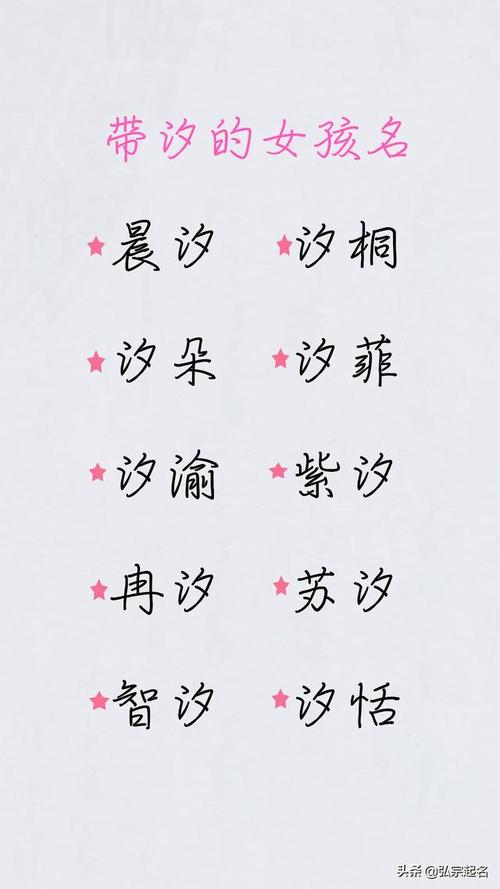 带汐的女孩名
晨汐 汐桐
汐朵 汐菲
汐渝 紫汐
冉汐 苏汐
智汐 汐恬
头条 @弘宗起名